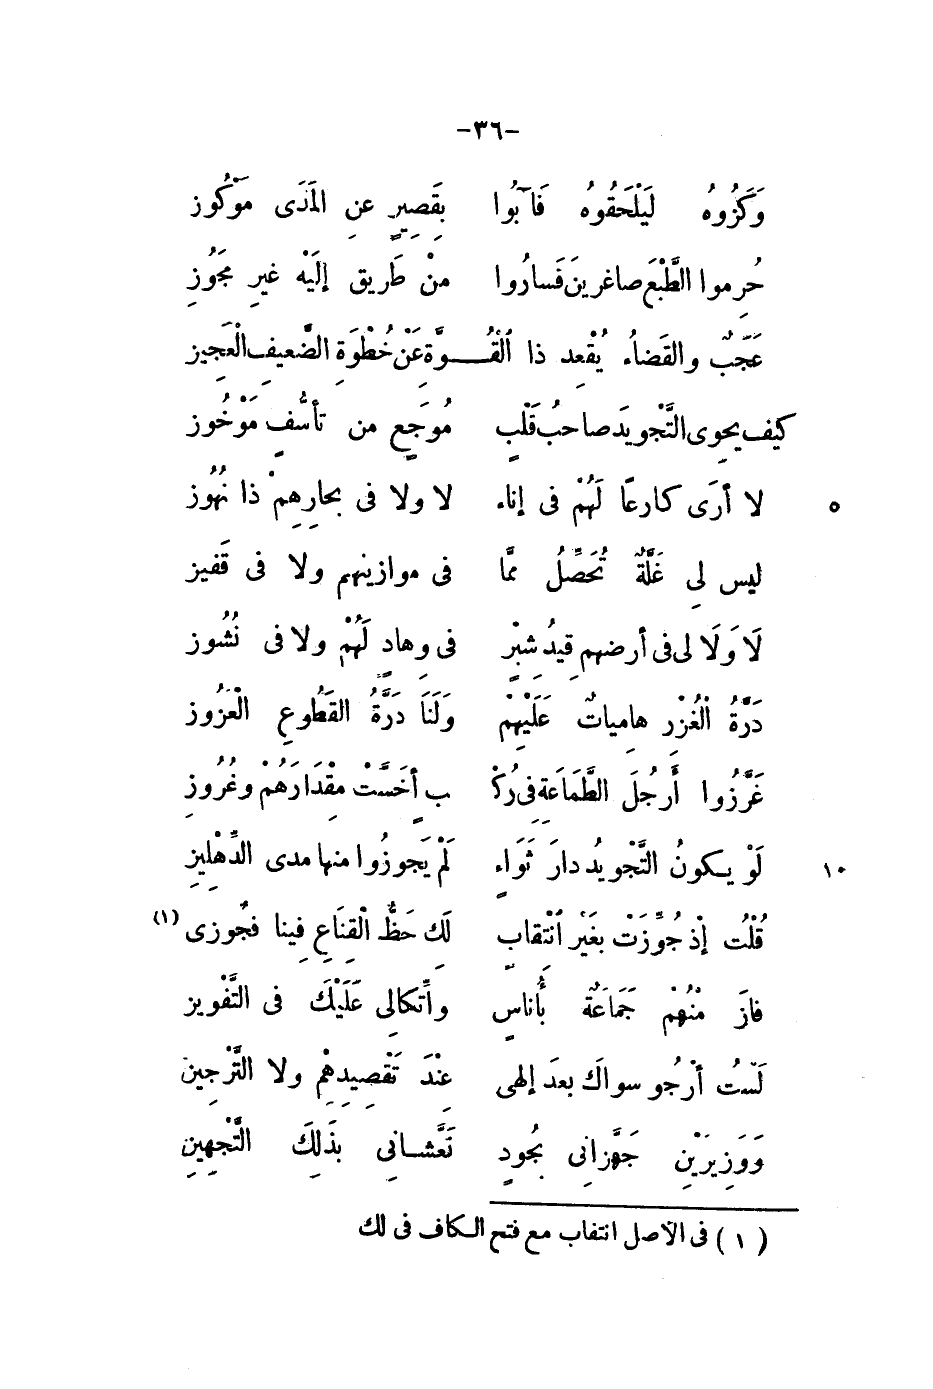 -٣٦-
وَكَزُوهُ لَيَلْحَقُوهُ فَآبُوا بِقَصِيرٍ عنِ المَدَى مَوْكُوز
حُرِموا الطَّبْعَ صاغرينَ فَسارُوا منْ طَريق إلَيْه غيرِ مَجُوزِ
عَجَبٌ والقَضاُء يُقْعِد ذا القُوَّة عَنْ خُطْوَةِ الضَّعيفِ الْعَجيز
كيف يحوِى التَّجْويدَ صاحبُ قَلْبٍ مُوجَعٍ من تأسُّفٍ مَوْخُوز
٥ لا أرَى كارعًا لَهُمْ فى إناء لا ولا فى بحارِهِمْ ذا نهُوز
ليس لِى غَلَّةٌ تُحَصِّلُ ممَّا فى موازينهم ولا فى قَفيز
لَا وَلَا لى فى أرضهمِ قِيدُ شِبْرٍ فى وِهادٍ لَهُمْ ولا فى نُشُوز
دَرَّةُ الْغُزْرِ هامِياتٌ عَلَيْهِمْ وَلَنَا دَرَّةُ القَطُوعِ الْعَزُوز
غَرَّزُوا أَرجُلَ الطَّمَاعَةِ فِى رُكْـ ـبٍ أَخَسَّتْ مِقْدَارَهُمْ وغُرُوزِ
١٠ لَوْ يكونُ التَّجْويدُ دارَ ثَوَاءٍ لَمْ يَجوزُوا منها مدى الدِّهْلِيزِ
قُلْتُ إذْ جُوِّزَتْ بغَيْرِ انْتِقابٍ لَكِ حَظُّ الْقِنَاعِ فِينا فجُوزى (١)
فازَ مِنْهُمْ جَمَاعَةٌ بأُناسٍ واتِّكالِى عَلَيْكَ فى التَّفْويز
لَسْتُ أرْجُو سواكَ بعدَ إلهى عِنْدَ تَقْصِيدِهِمْ ولا التَّرْجِينِ
وَوَزِيرَيْنِ جَهَّزانِى بجُودٍ نَعَّشانِى بذَلِكَ التَّجْهِينِ
(١) فى الأصل انتفاب مع فتح الكاف فى لك